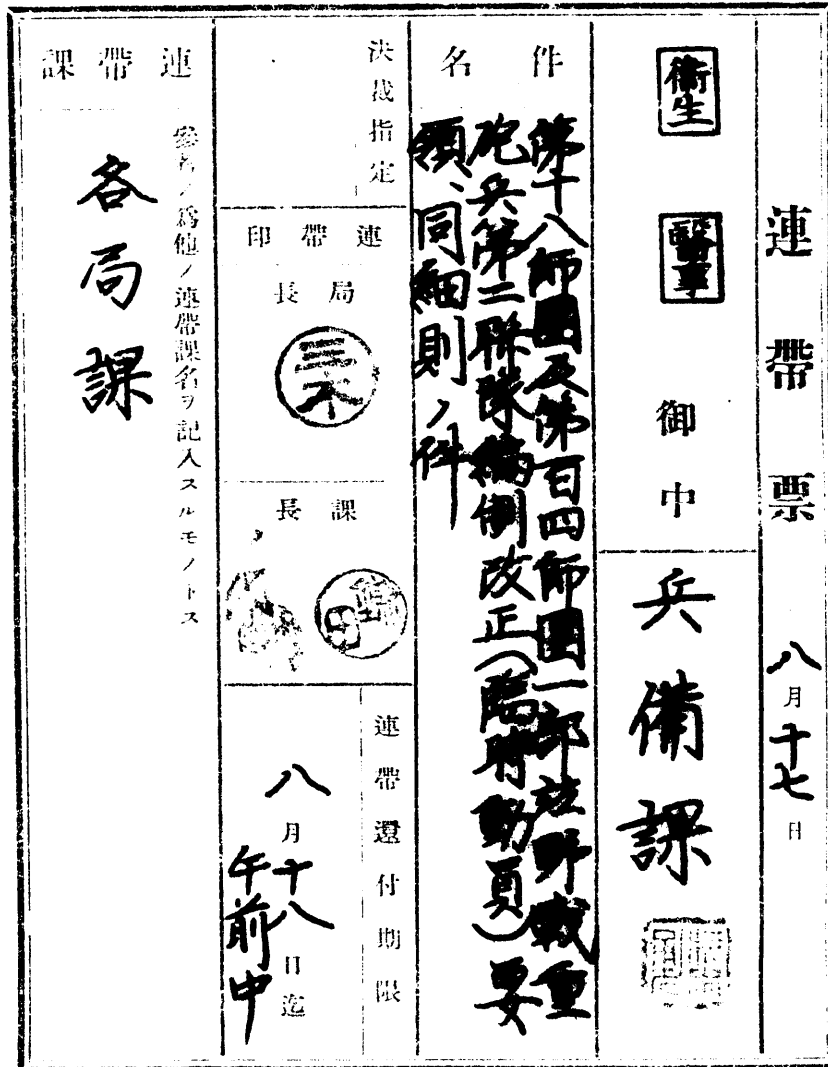 連帶票
八月十七日
衞生
醫事
御中
兵備課
件名
第十八師團及第百四師團一部竝野戰重
砲兵第二聯隊編制改正(臨時動員)要
領、同細則ノ件
決裁指定
連帶印
局長
三木
課長
連帶還付期限
八月十八日迄
午前中
連帶課
參考ノ爲他ノ連帶課名ヲ記入スルモノトス
各局課